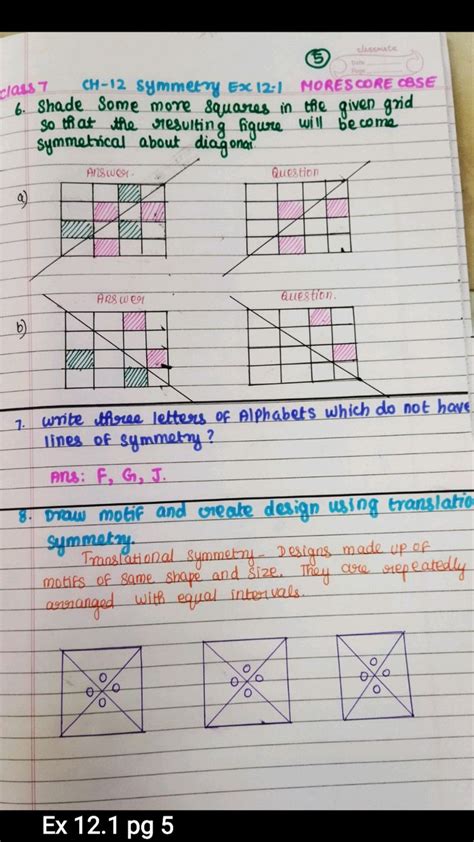 5
classmate
Date
Page
Class 7 CH-12 Symmetry Ex 12.1 MORESCORE CBSE
6. Shade some more squares in the given grid
so that the resulting figure will become
symmetrical about diagonal
Answer. Question
a)
Answer Question.
b)
7. Write three letters of Alphabets which do not have
lines of symmetry?
Ans: F, G, J.
8. Draw motif and create design using translatio
symmetry.
Translational symmetry - Designs made up of
motifs of same shape and size. They are repeatedly
arranged with equal intervals.
Ex 12.1 pg 5